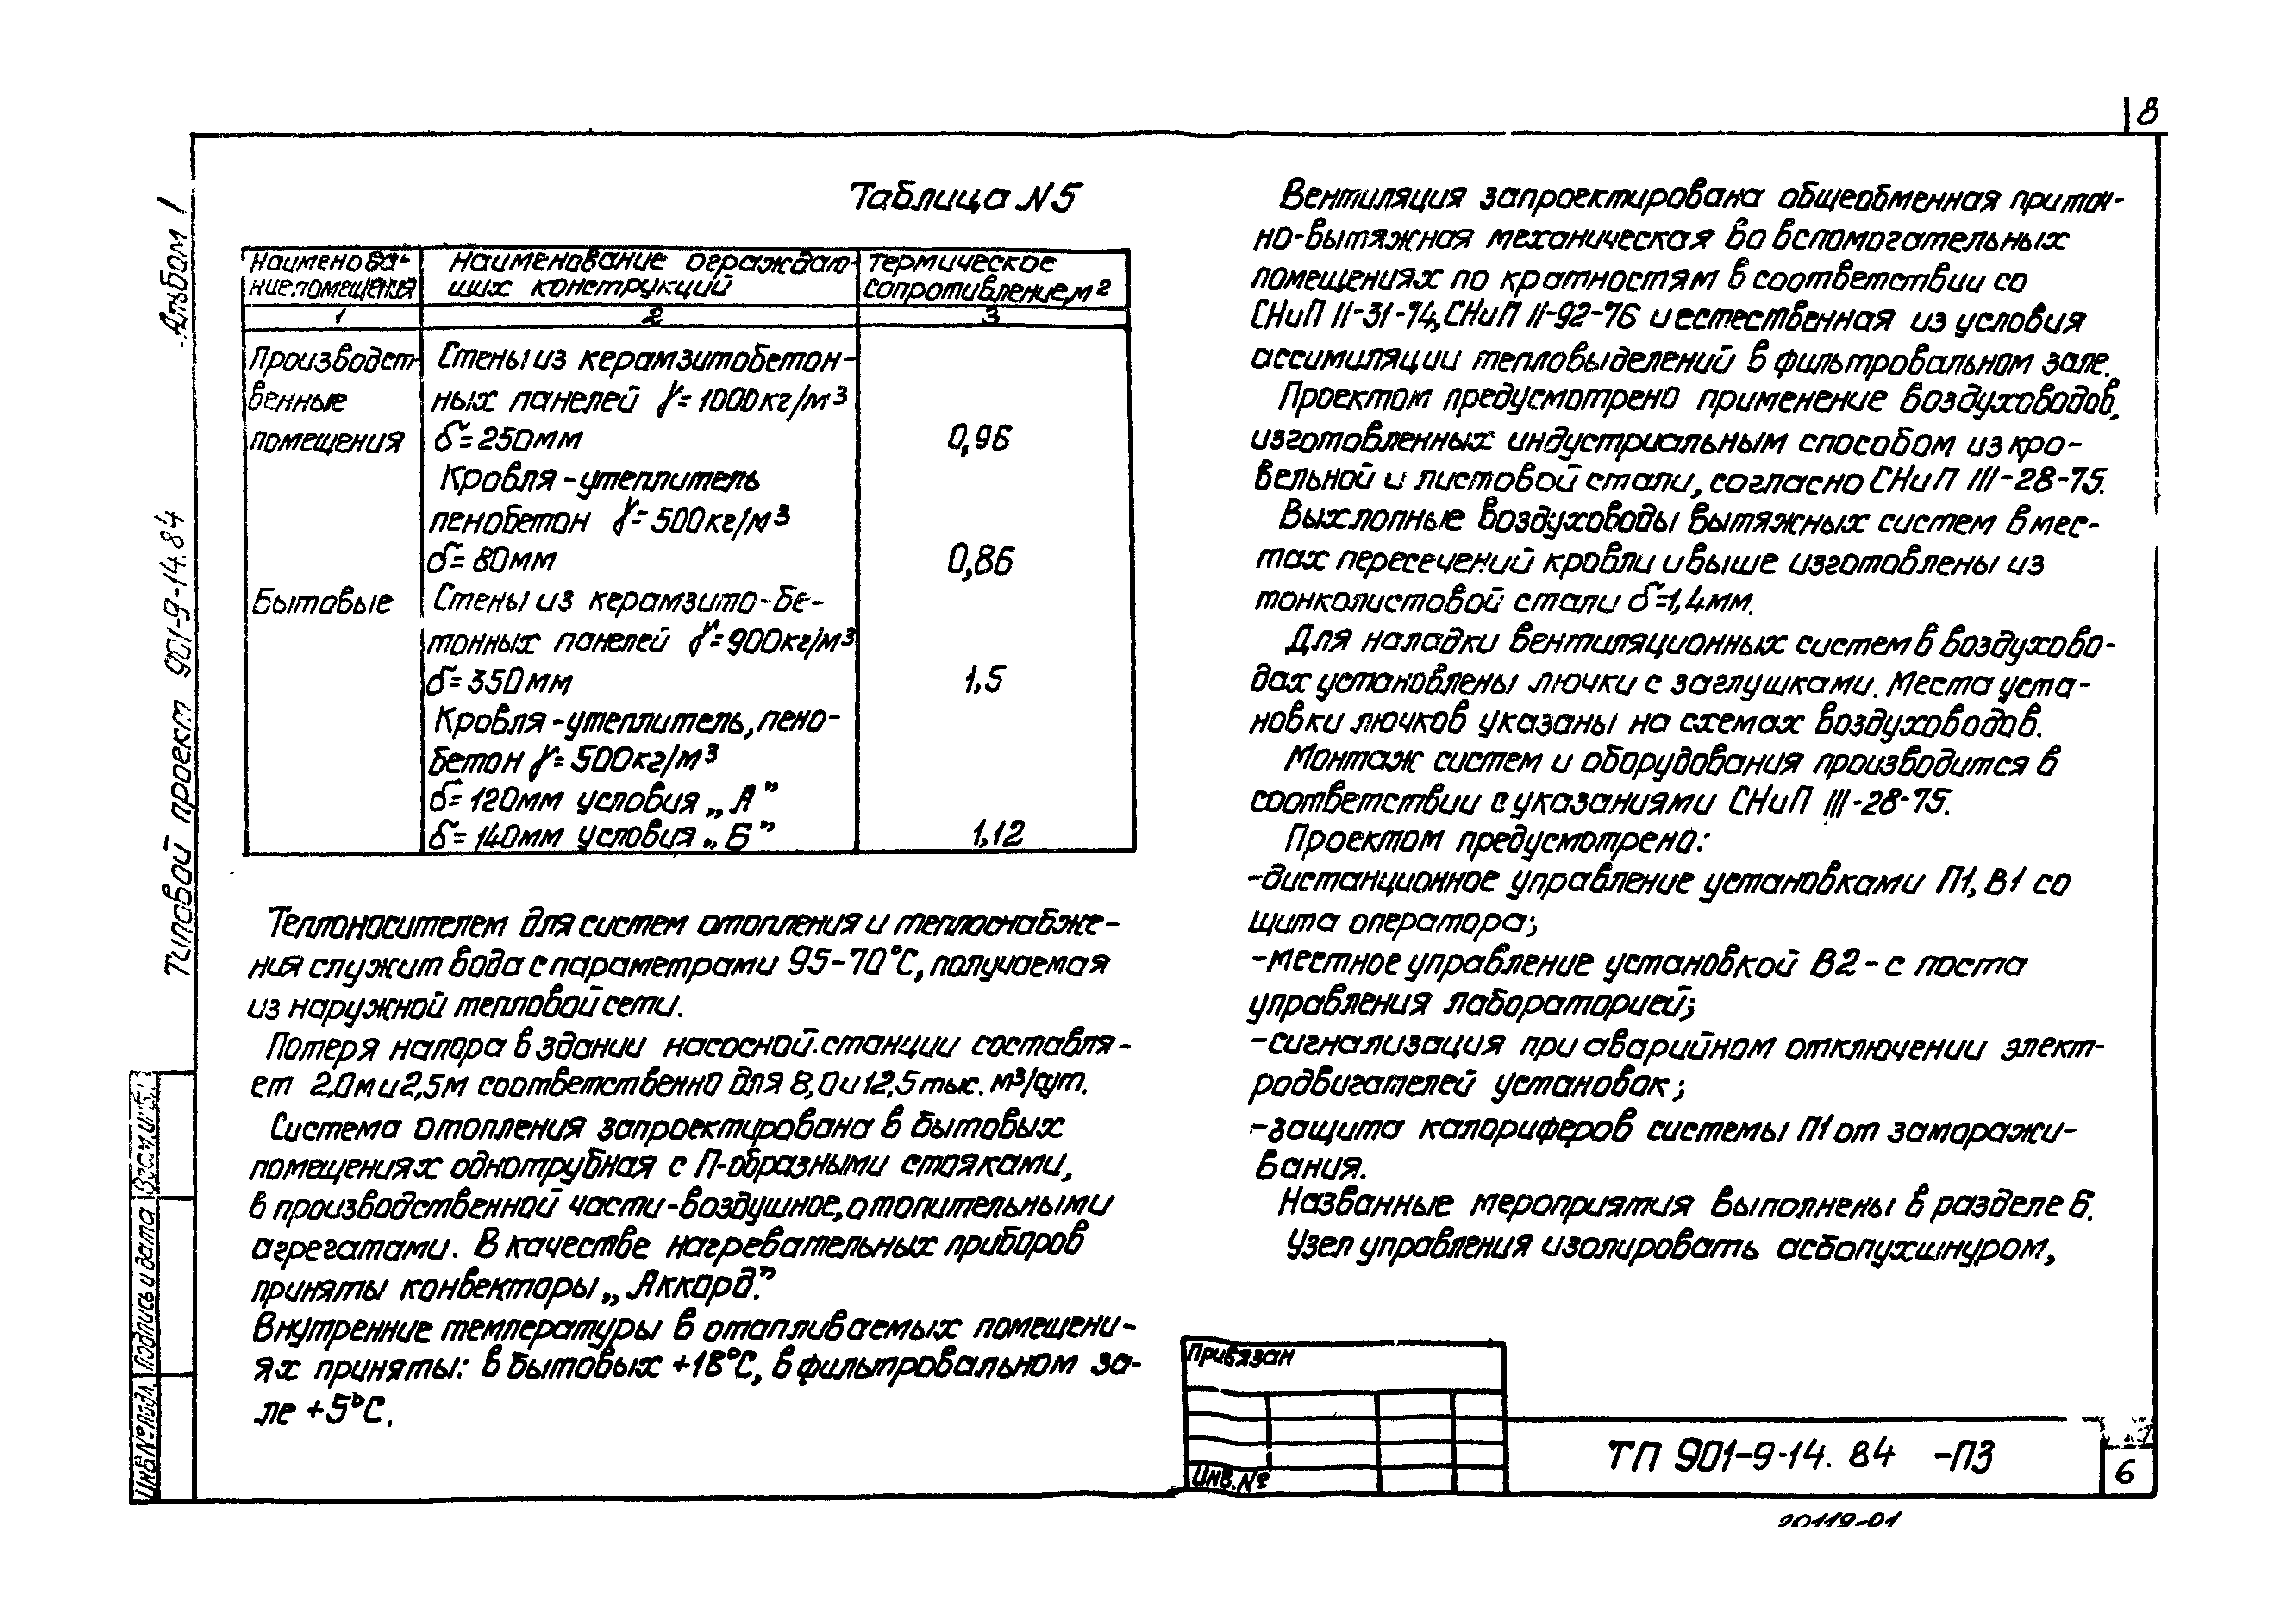 8
Альбом 1
Типовой проект 901-9-14.84
Таблица №5
Наименова- Наименование ограждаю- термическое
ние помещения щих конструкций сопротивление, м²
1 2 3
Производст- Стены из керамзитобетон-
венные ных панелей γ=1000кг/м³
помещения δ=250мм 0,96
Кровля-утеплитель
пенобетон γ=500кг/м³
δ=80мм 0,86
Бытовые Стены из керамзито-бе-
тонных панелей γ=900кг/м³
δ=350мм 1,5
Кровля-утеплитель, пено-
бетон γ=500кг/м³
δ=120мм условия „А”
δ=140мм условия „Б” 1,12
Теплоносителем для систем отопления и теплоснабже-
ния служит вода с параметрами 95-70°С, получаемая
из наружной тепловой сети.
Потеря напора в здании насосной станции составля-
ет 2,0м и 2,5м соответственно для 8,0 и 12,5 тыс. м³/сут.
Система отопления запроектирована в бытовых
помещениях однотрубная с П-образными стояками,
в производственной части-воздушное, отопительными
агрегатами. В качестве нагревательных приборов
приняты конвекторы „Аккорд”.
Внутренние температуры в отапливаемых помещени-
ях приняты: в бытовых +18°С, в фильтровальном за-
ле +5°С.
Вентиляция запроектирована общеобменная приточ-
но-вытяжная механическая во вспомогательных
помещениях по кратностям в соответствии со
СНиП II-31-74, СНиП II-92-76 и естественная из условия
ассимиляции тепловыделений в фильтровальном зале.
Проектом предусмотрено применение воздуховодов,
изготовленных индустриальным способом из кро-
вельной и листовой стали, согласно СНиП III-28-75.
Выхлопные воздуховоды вытяжных систем в мес-
тах пересечений кровли и выше изготовлены из
тонколистовой стали δ=1,4мм.
Для наладки вентиляционных систем в воздухово-
дах установлены лючки с заглушками. Места уста-
новки лючков указаны на схемах воздуховодов.
Монтаж систем и оборудования производится в
соответствии с указаниями СНиП III-28-75.
Проектом предусмотрено:
-дистанционное управление установками П1, В1 со
щита оператора;
-местное управление установкой В2-с поста
управления лабораторией;
-сигнализация при аварийном отключении элект-
родвигателей установок;
-защита калориферов системы П1 от заморажи-
вания.
Названные мероприятия выполнены в разделе 6.
Узел управления изолировать асбопухшнуром,
Привязан
Инв.№
ТП 901-9-14.84 -ПЗ
6
20119-01
Инв.№ подл. Подпись и дата Взам.инв.